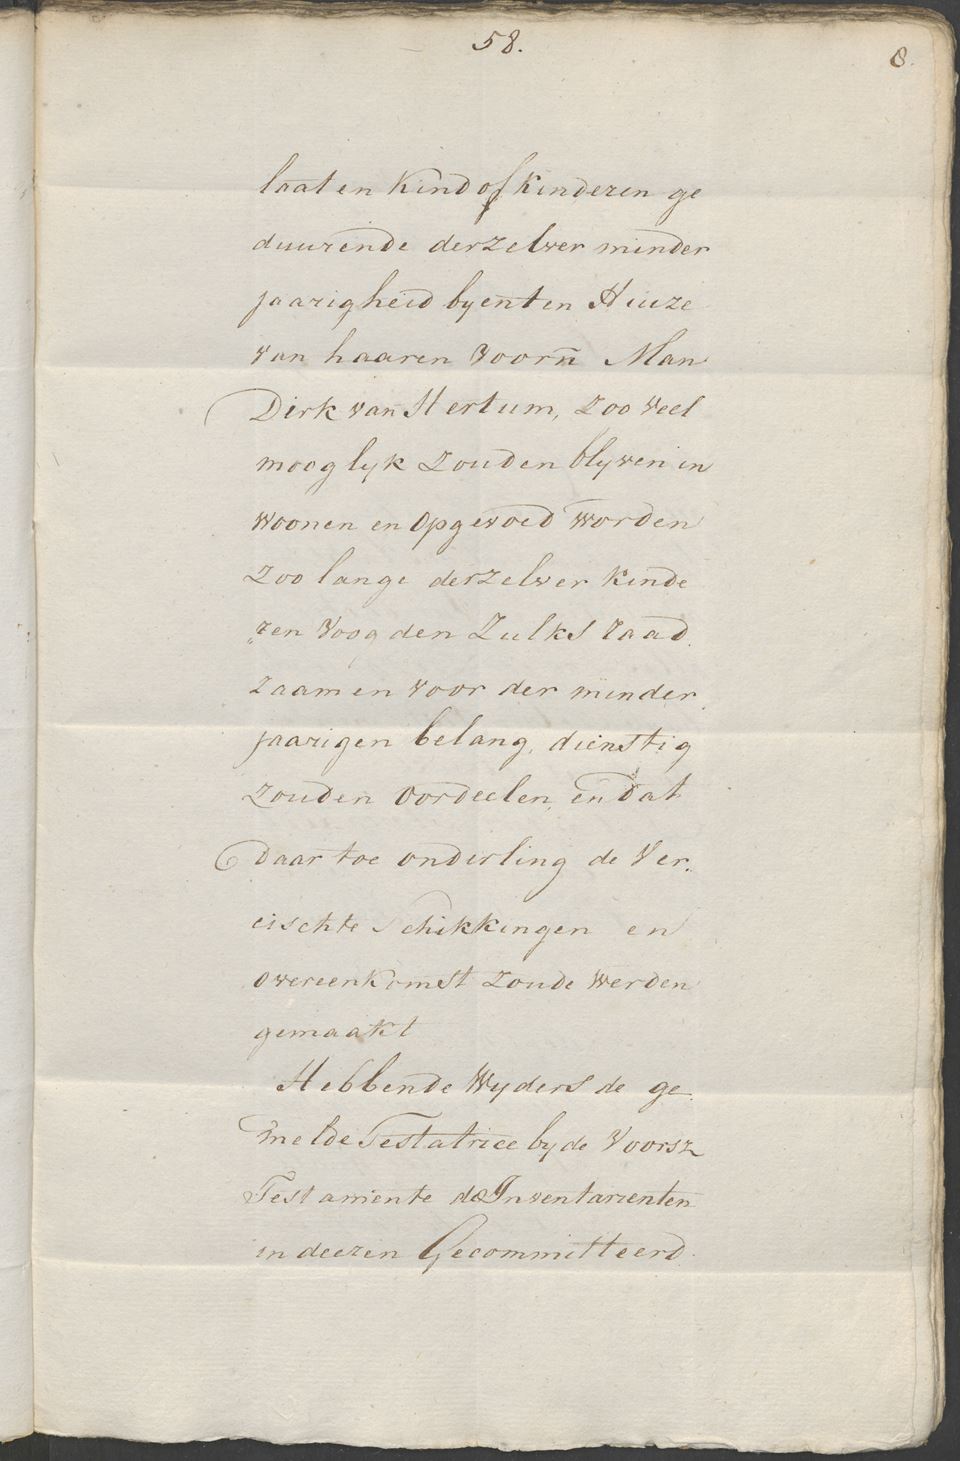 58.
8.
laaten Kind of kinderen ge
duurende derzelver minder
jaarigheid by en ten Huize
van haaren Voorn̄ Man
Dirk van Hertum, zoo veel
mooglyk zouden blyven in
woonen en Opgevoed worden
zoo lange derzelver Kinde
„ren Voogden Zulks raad.
zaam en voor der minder.
jaarigen belang, dienstig
zouden Oordeelen, en dat
daar toe onderling de Ver.
eischte Schikkingen en
overeenkomst zoude werden
gemaakt
Hebbende Wyders de ge
melde Testatrice by de Voorsz
Testamente de Inventarienten
in deezen Gecommitteerd